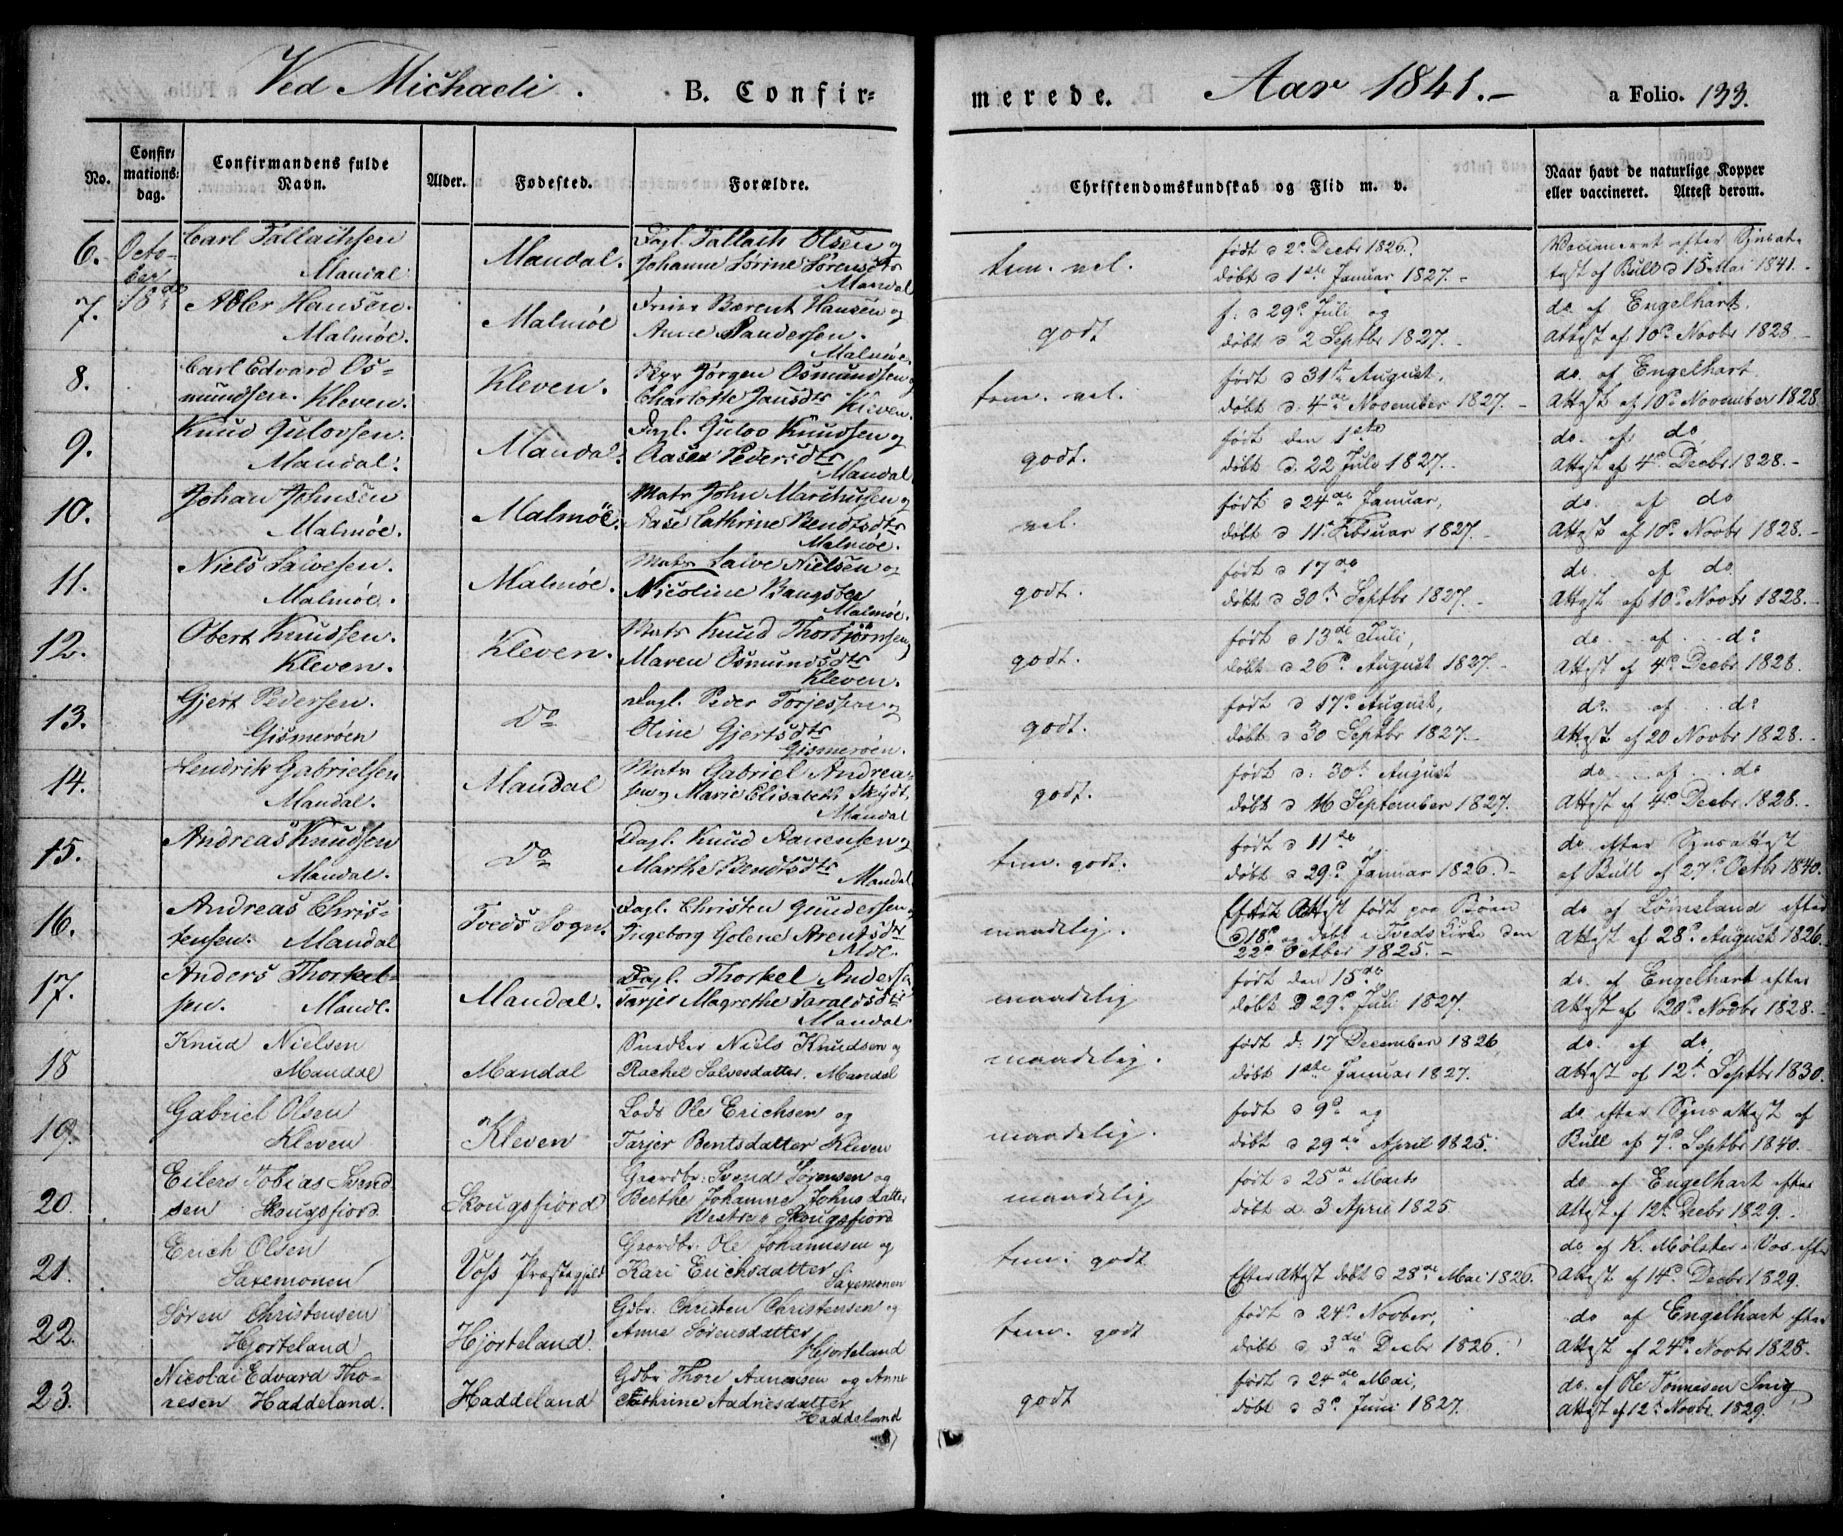 Ved Michaeli.
B. Confir-
merede.
Aar 1841.-
a Folio. 133.
No.
Confir-
mations-
dag.
Confirmandens fulde
Navn.
Alder.
Fødested.
Forældre.
Christendomskundskab og Flid m. v.
Naar havt de naturlige Kopper
eller vaccineret. Attest derom.
6. Octo-
ber
18de
Carl Tallachsen
Mandal
Mandal.
Dagl. Tallach Olsen og
Johanne Sørine Sørensdtr
Mandal
tem. vel.
født d 2d Decbr 1826.
døbt d 1ste Januar 1827.-
Vaccineret efter Synsat-
test af Bull d 15 Mai 1841.-
7.
Adler Hansen.
Malmøe.
Malmøe
Bærent Hansen og
Anne Sandersen.
Malmøe
godt
f. d 29d Juli og
døbt d 2 Septbr 1827.-
do. af Engelhart.
Attest af 10d Novbr 1828.-
8.
Carl Edvard Os-
mundsen. Kleven.
Kleven.
Jørgen Osmundsen og
Charlotte Jansdtr Kleven.
tem. vel.
født d 31te August,
døbt d. 4de November 1827.-
do. af Engelhart
Attest af 10d November 1828
9.
Knud Gulovsen.
Mandal.
Mandal.
Dagl. Gulov Knudsen og
Aase Pedersdtr
Mandal
godt.
født den 1ste
døbt d. 22 July 1827.-
do. af do
Attest af 4d Decbr 1828.-
10.
Johan Johnsen
Malmøe.
Malmöe.
Matr John Marchusen og
Aase Cathrine Bendtsdtr
Malmøe.
vel.
født d 24de Januar,
døbt d 11 Februar 1827.-
do. af do
Attest af 10d Novbr 1828.
11.
Niels Salvesen.
Malmøe.
Malmøe.
Matr Salve Nielsen og
Nicoline Bangsber
Malmøe.
godt.
født d 17de
døbt d 30te Septbr 1827.-
do. af do
Attest af 10d Novbr 1828.-
12.
Obert Knudsen.
Kleven.
Kleven.
Matr Knud Thorbjørnsen og
Maren Osmundsdtr
Kleven.
godt.
født d 13de Juli,
døbt d 26d August 1827.-
do. af. do
Attest af 4d Decbr 1828.
13.
Gjert Pedersen.
Gismerøen
Do
Dagl. Peder Torjessen og
Oline Gjertsdtr
Gismerøen.
godt.
født d 17d August,
døbt d 30 Septbr 1827.-
do. af do
Attest af 20 Novbr 1828.-
14.
Hendrik Gabrielsen
Mandal.
Mandal
Matr Gabriel Andrea-
sen og Marie Elisabeth Skydt,
Mandal
godt.
født d. 30te August
døbt d 16 September 1827.
do. af do
Attest af 4d Decbr 1828.-
15.
Andreas Knudsen
Mandal.
Do
Dagl. Knud Aanensen og
Marthe Bendtsdtr
Mandal
tem. godt.
født d 11te
døbt d 29d Januar 1826.-
do efter Synsattest
af Bull af 27d Octbr 1840.
16.
Andreas Chris-
tensen. Mandal
Tveds Sogn.
Dagl. Christen Gundersen og
Ingeborg Golene Arentsdtr
Mdl.
maadelig.
Efter Attest født paa Bøen
d 18d og døbt i Tveds Kirke den
22d Octber 1825.-
do. af Lømsland efter
Attest af 28d August 1826.
17.
Anders Thorkel-
sen. Mandl.
Mandal.
Dagl. Thorkel Andersen
Tarjer Magrethe Taraldsdtr
Mandal
maadelig
født den 15de
døbt d 29d Juli 1827.
do. af Engelhart efter
Attest af 20d Novbr 1828.-
18
Knud Nielsen
Mandal
Mandal
Snedker Niels Knudsen og
Rachel Salvesdatter. Mandal
maadelig.
født d. 17 December 1826,
døbt 1ste Januar 1827.
do. af do,
Attest af 12te Septbr 1830.
19.
Gabriel Olsen
Kleven
Kleven
Lods Ole Erichsen og
Tarjer Bentsdatter Kleven
maadelig.
født d 9d og
døbt d 29de April 1825.
do efter Synsattest af
Bull af 7d Septbr 1840.-
20.
Eilers Tobias Svend-
sen Skougsfiord
Skougsfiord
Gaardbr. Svend Sørensen og
Berthe Johanne Johnsdatter
Westre Skougsfiord
maadelig
født d 25de Marts
døbt d. 3 April 1825
do. af Engelhart efter
Attest af 12te Decbr 1829.-
21.
Erich Olsen
Saxemonen
Voss Præstegjeld
Gaardbr. Ole Johannesen og
Kari Erichsdatter
Saxemonen
tem. godt
Efter Attest døbt d 28de Mai 1826.
do af K. Mølster i Vos efter
Attest af 14d Decbr 1829.
22.
Søren Christensen
Hjorteland
Hjorteland.
Gdbr. Christen Christensen og
Anne Sørensdatter
Hjorteland
tem. godt
født d 24d Novber,
døbt d 3die Decbr 1826.
do af Engelhart efter
Attest af 24d Novbr 1828.
23.
Nicolai Edvard Tho-
resen Haddeland.
Haddeland
Gdbr Thore Aanensen og Anne
Cathrine Aadnesdatter
Haddeland
godt
født d 24de Mai,
døbt d 3d Juni 1827.
do. af Ole Tønnesen Snig,
Attest af 12te Novbr 1829.